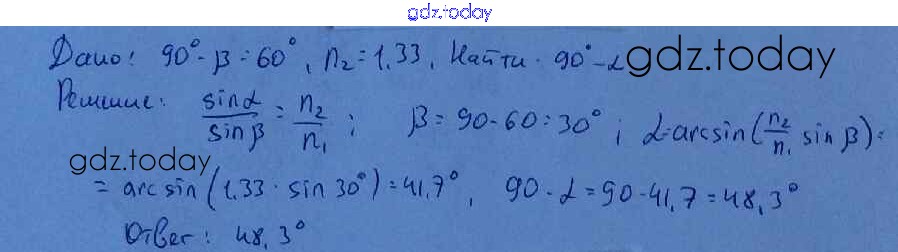 gdz.today
Дано: 90° - β = 60°, n₂ = 1.33. Найти: 90° - α gdz.today
Решение: sinα/sinβ = n₂/n₁; β = 90 - 60 = 30°; α = arcsin(n₂/n₁ sin β) =
gdz.today
= arcsin(1.33 · sin 30°) = 41,7°, 90 - α = 90 - 41,7 = 48,3°
Ответ: 48,3°